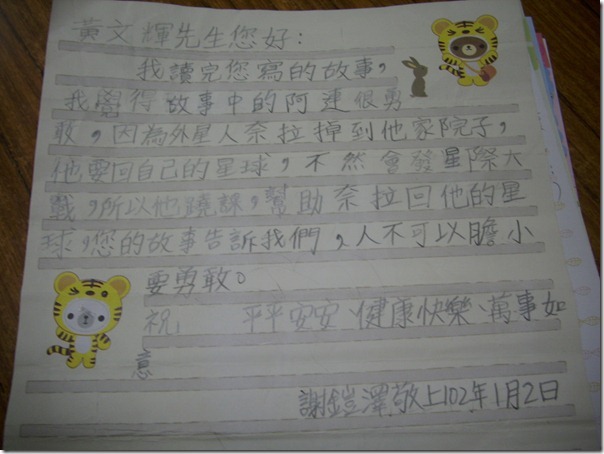 黃文輝先生您好：
我讀完您寫的故事，
我覺得故事中的阿連很勇
敢，因為外星人奈拉掉到他家院子，
他要回自己的星球，不然會發星際大
戰，所以他蹺課，幫助奈拉回他的星
球，您的故事告訴我們，人不可以膽小
要勇敢。
祝 平平安安、健康快樂、萬事如
意
謝鎧澤敬上102年1月2日